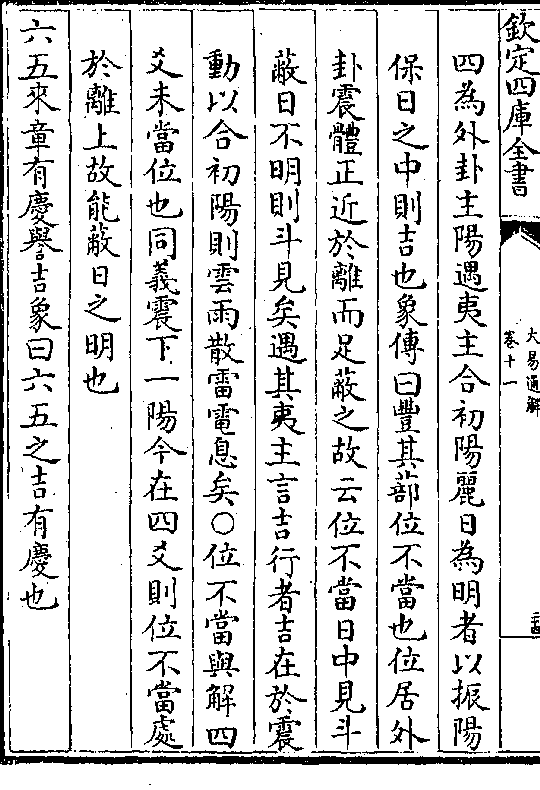 欽定四庫全書
大易通解
卷十一
四為外卦主陽遇夷主合初陽麗日為明者以振陽
保日之中則吉也象傳曰豐其蔀位不當也位居外
卦震體正近於離而足蔽之故云位不當日中見斗
蔽日不明則斗見矣遇其夷主言吉行者吉在於震
動以合初陽則雲雨散雷電息矣○位不當與解四
爻未當位也同義震下一陽今在四爻則位不當處
於離上故能蔽日之明也
六五來章有慶譽吉象曰六五之吉有慶也